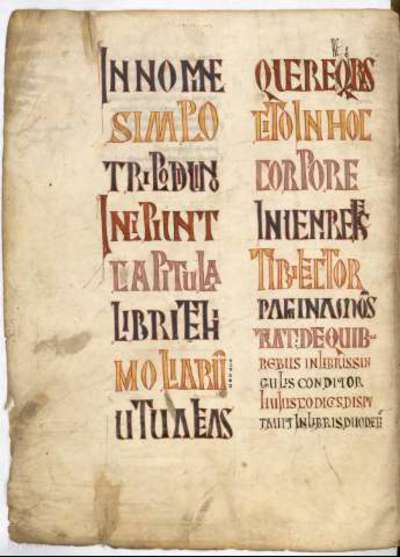 IN NOMINE
SIMPLO
INCIPIUNT
CAPITULA
LIBRI ETHI
MOLIARŪ
UT UALEAS
QUE REQIRIS
CITO IN HOC
CORPORE
INUENIRE
TIBI LECTOR
PAGINA MŌS
TRAT DE QUIB
REBUS IN LIBRIS SIN
GULIS CONDITOR
HUIUS CODICIS DISPU
TAUIT IN LIBRIS